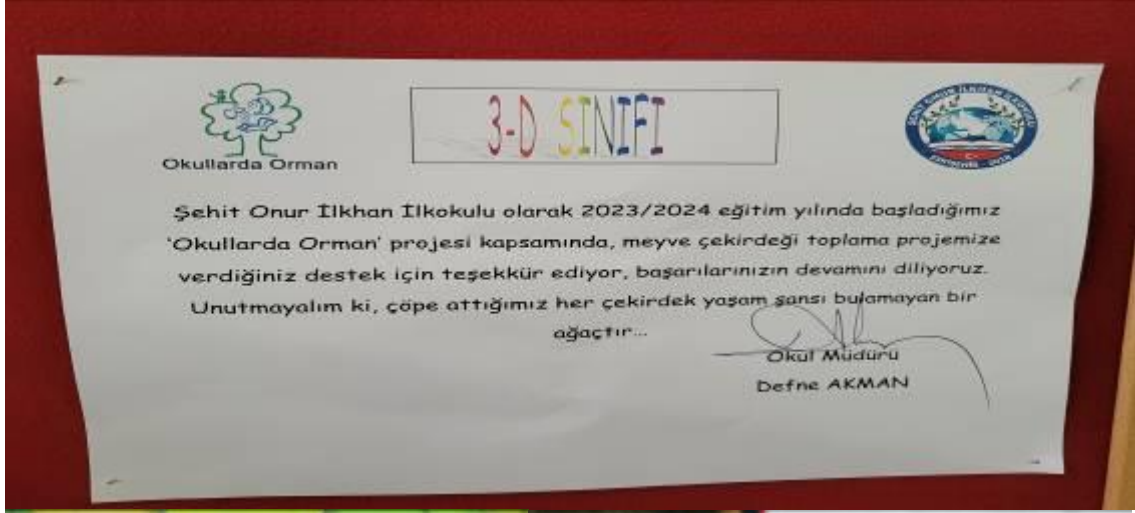 3-D SINIFI
Okullarda Orman
Şehit Onur İlkhan İlkokulu olarak 2023/2024 eğitim yılında başladığımız
'Okullarda Orman' projesi kapsamında, meyve çekirdeği toplama projemize
verdiğiniz destek için teşekkür ediyor, başarılarınızın devamını diliyoruz.
Unutmayalım ki, çöpe attığımız her çekirdek yaşam şansı bulamayan bir
ağaçtır...
Okul Müdürü
Defne AKMAN